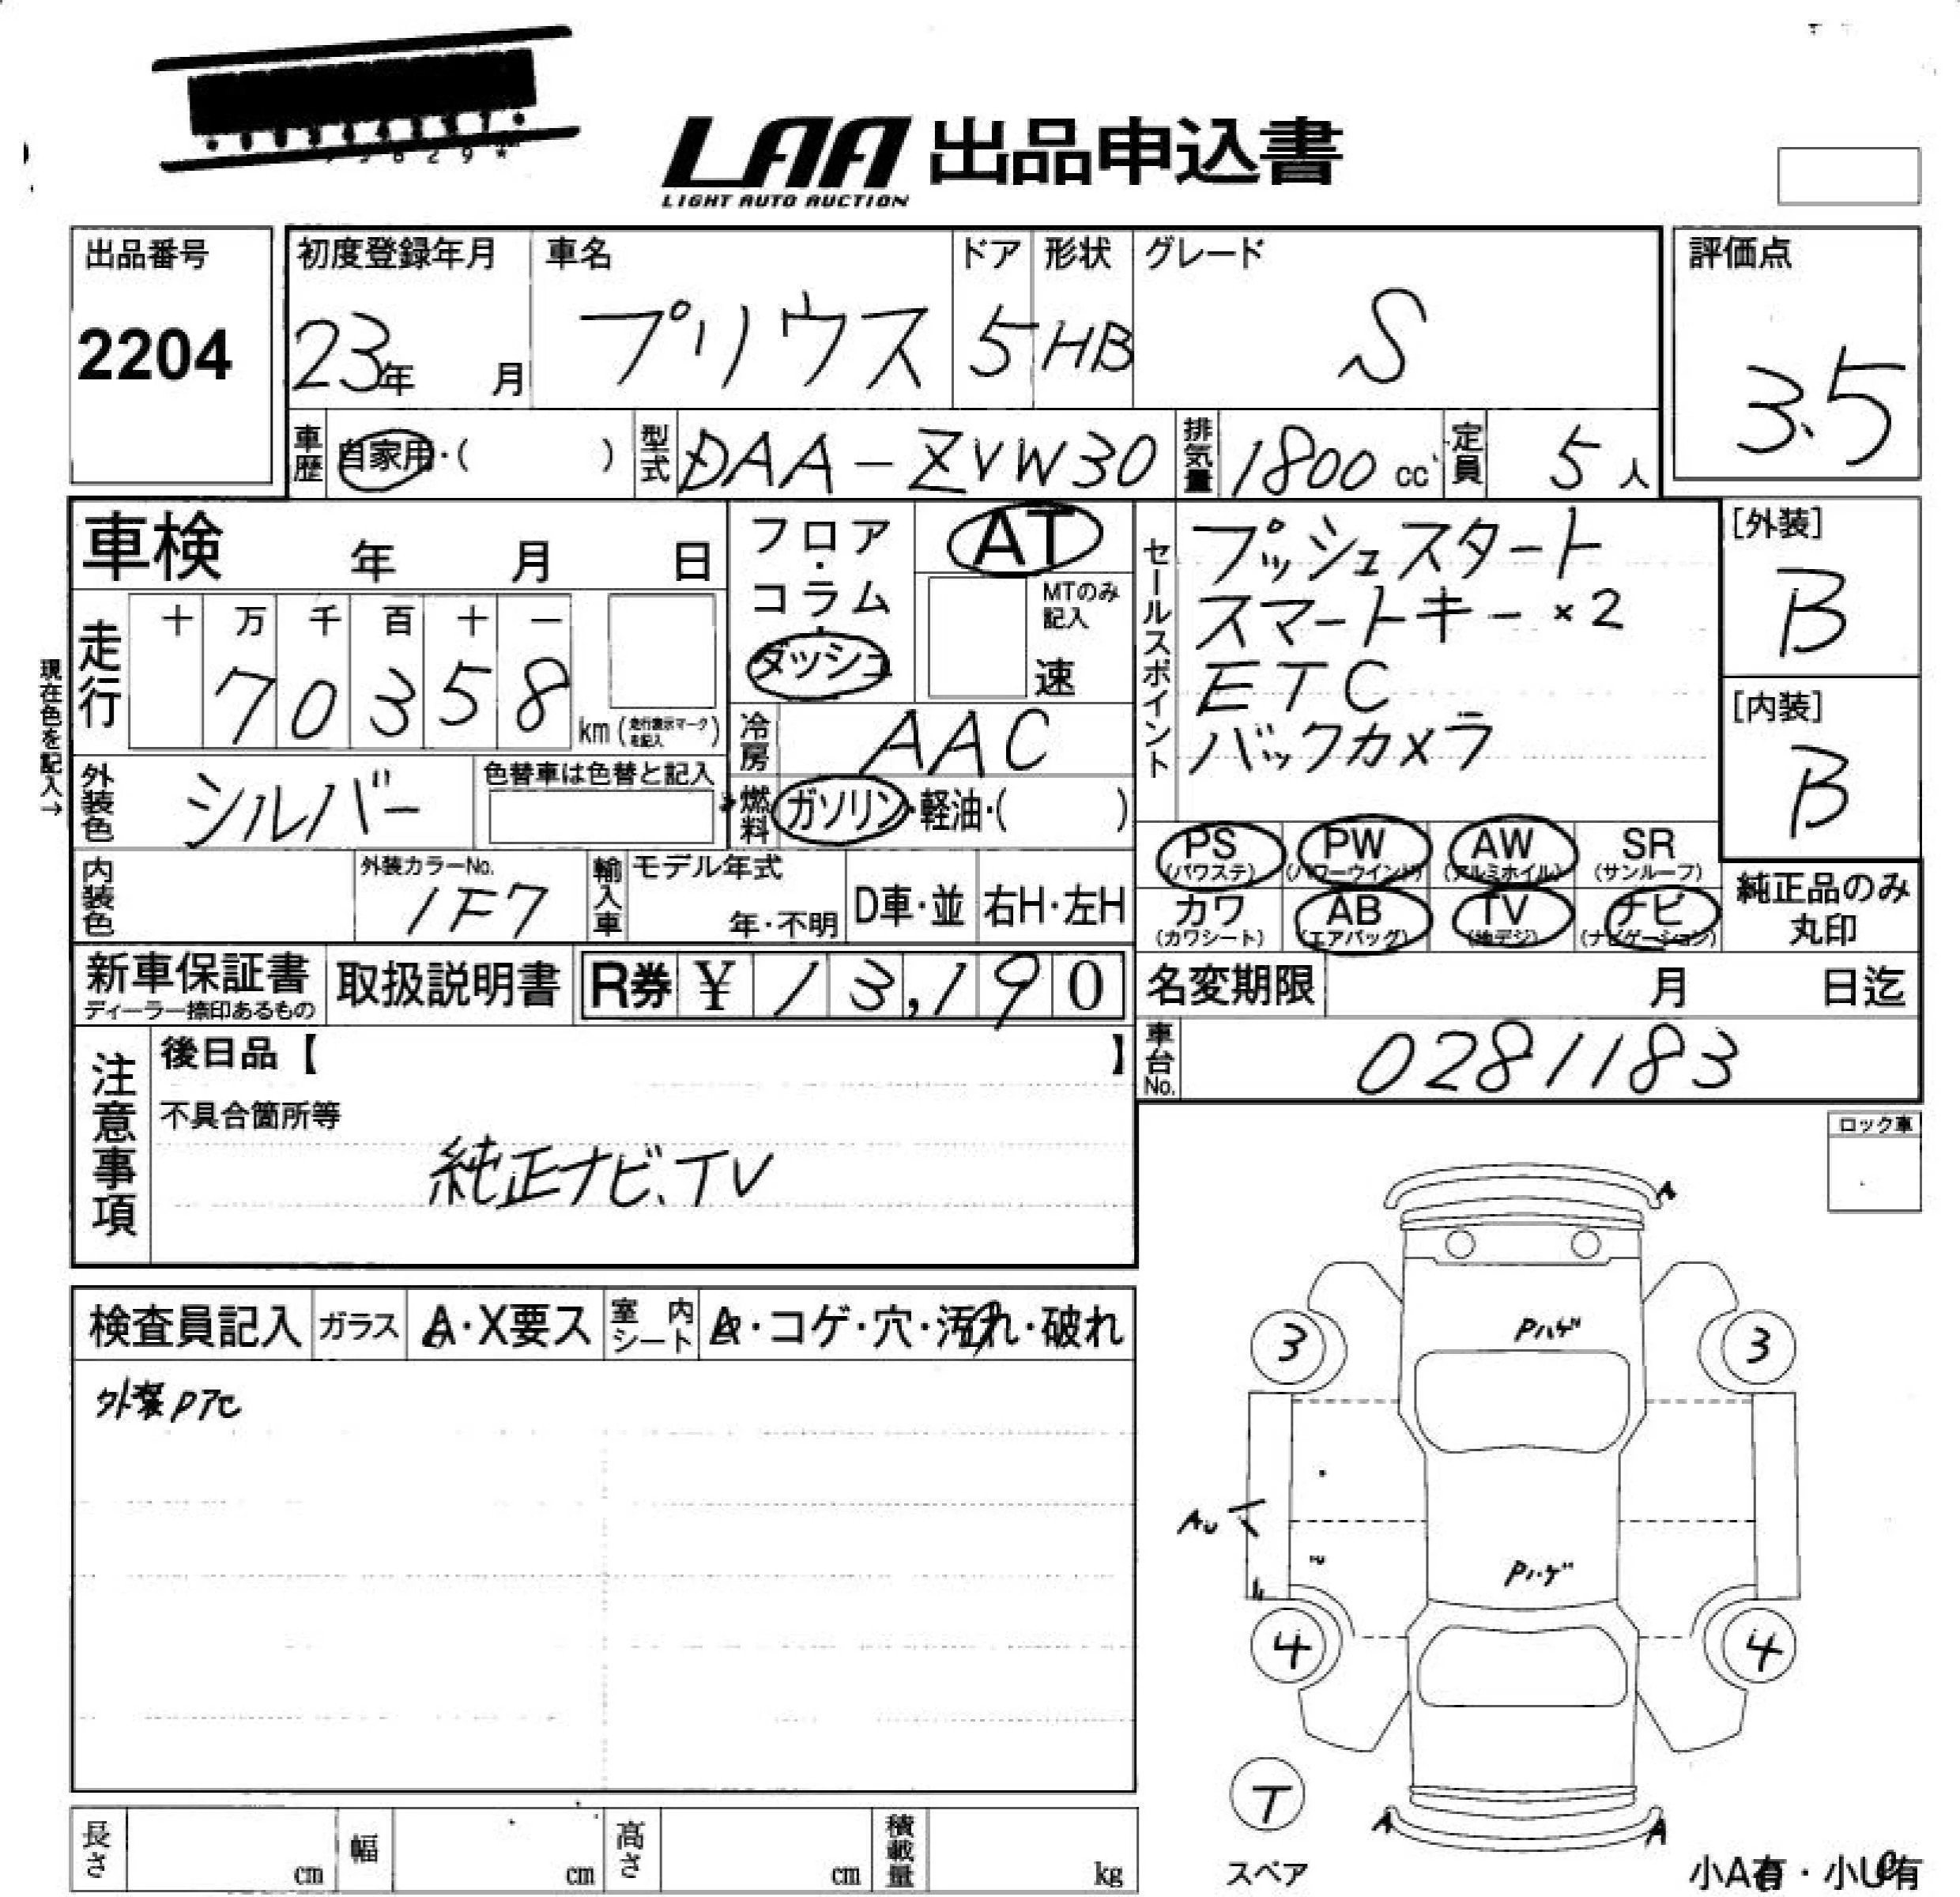 9829*
LAA 出品申込書
LIGHT AUTO AUCTION
出品番号
2204
初度登録年月
23年 月
車名
プリウス
ドア
5
形状
HB
グレード
S
評価点
3.5
車歴
自家用・( )
型式
DAA-ZVW30
排気量
1800 cc
定員
5人
車検 年 月 日
フロア・コラム・ダッシュ
AT
MTのみ記入
速
セールスポイント
プッシュスタート
スマートキー×2
ETC
バックカメラ
[外装]
B
[内装]
B
現在色を記入→
走行
十 万 千 百 十 一
7 0 3 5 8
km (走行表示マークを記入)
冷房
AAC
外装色
シルバー
色替車は色替と記入
燃料
ガソリン・軽油・( )
PS
(パワステ)
PW
(パワーウインド)
AW
(アルミホイル)
SR
(サンルーフ)
カワ
(カワシート)
AB
(エアバッグ)
TV
(地デジ)
ナビ
(ナビゲーション)
純正品のみ
丸印
内装色
外装カラーNo.
1F7
輸入車
モデル年式
年・不明
D車・並
右H・左H
新車保証書
ディーラー捺印あるもの
取扱説明書
R券 ¥ 13,190
名変期限 月 日迄
車台No.
0281183
注意事項
後日品【 】
不具合箇所等
純正ナビ、TV
ロック車
検査員記入
ガラス
A・X要ス
室内シート
A・コゲ・穴・汚れ・破れ
外装P7c
A
Pハゲ
3
3
AU
Pハゲ
4
4
T
スペア
A
A
長さ cm
幅 cm
高さ cm
積載量 kg
小A有・小U有